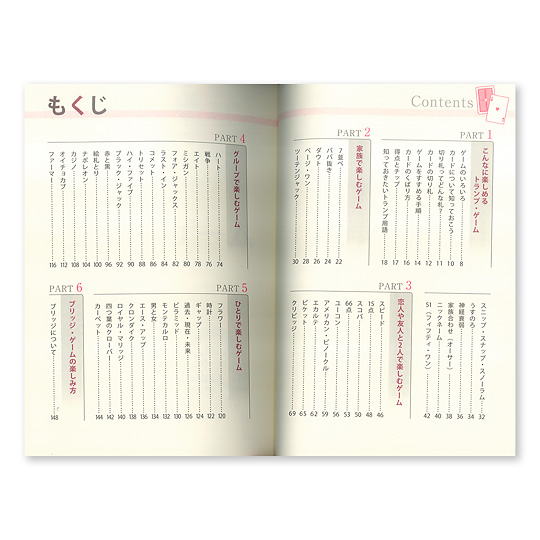 Contents
PART 1
こんなに楽しめる
トランプ・ゲーム
ゲームのいろいろ……8
カードについて知っておこう……10
切り札ってどんな札?……11
カードの切り方……12
カードのくばり方……14
ゲームをすすめる手順……16
得点とチップ……17
知っておきたいトランプ用語……18
PART 2
家族で楽しむゲーム
7並べ……22
ババ抜き……24
ダウト……26
ページ・ワン……28
ツーテンジャック……30
スニップ・スナップ・スノーラム……32
うすのろ……34
神経衰弱……36
家族合わせ（オーサー）……38
ニックネーム……40
51（フィフティ・ワン）……42
PART 3
恋人や友人と2人で楽しむゲーム
スピード……46
15点……48
スコパ……50
66点……53
ユーコン……56
アメリカン・ピノークル……59
エカルテ……62
ピケット……65
クリビッジ……69
もくじ
PART 4
グループで楽しむゲーム
ハート……74
戦争……76
エイト……78
ミシガン……80
フォア・ジャックス……82
ラスト・イン……84
コメット……86
トリセット……88
ハイ・ファイブ……90
ブラック・ジャック……92
赤と黒……96
絵札とり……100
ナポレオン……104
カジノ……108
オイチョカブ……112
ファーマー……116
PART 5
ひとりで楽しむゲーム
フラワー……120
時計……122
ギャップ……124
過去・現在・未来……126
ピラミッド……130
モンテカルロ……132
男と女……134
エース・アップ……136
クロンダイク……138
ロイヤル・マリッジ……140
四つ葉のクローバー……142
カーペット……144
PART 6
ブリッジ・ゲームの楽しみ方
ブリッジについて……148